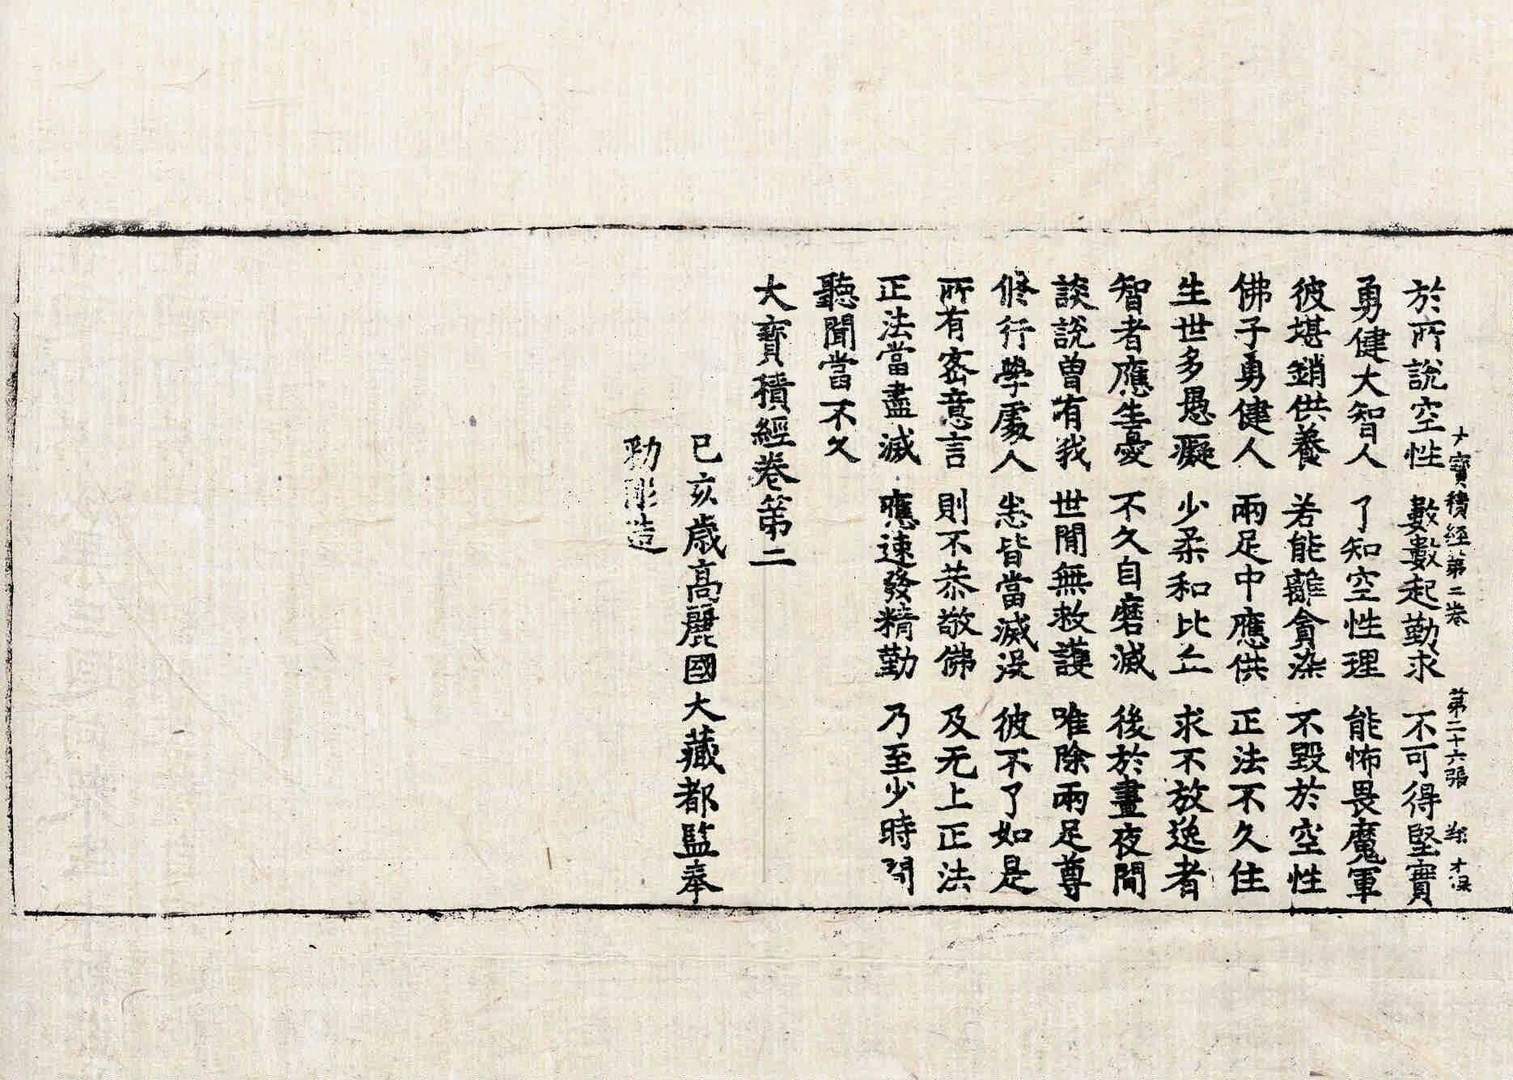 大寶積經第二卷 第二十六張
於所說空性 數數起勤求 不可得堅實
勇健大智人 了知空性理 能怖畏魔軍
彼堪銷供養 若能離貪染 不毀於空性
佛子勇健人 兩足中應供 正法不久住
生世多愚癡 少柔和比丘 求不放逸者
智者應生憂 不久自磨滅 後於晝夜間
談說曾有我 世間無救護 唯除兩足尊
修行學處人 悉皆當滅沒 彼不了如是
所有密意言 則不恭敬佛 及无上正法
正法當盡滅 應速發精勤 乃至少時間
聽聞當不久
大寶積經卷第二
己亥歲高麗國大藏都監奉
勅彫造